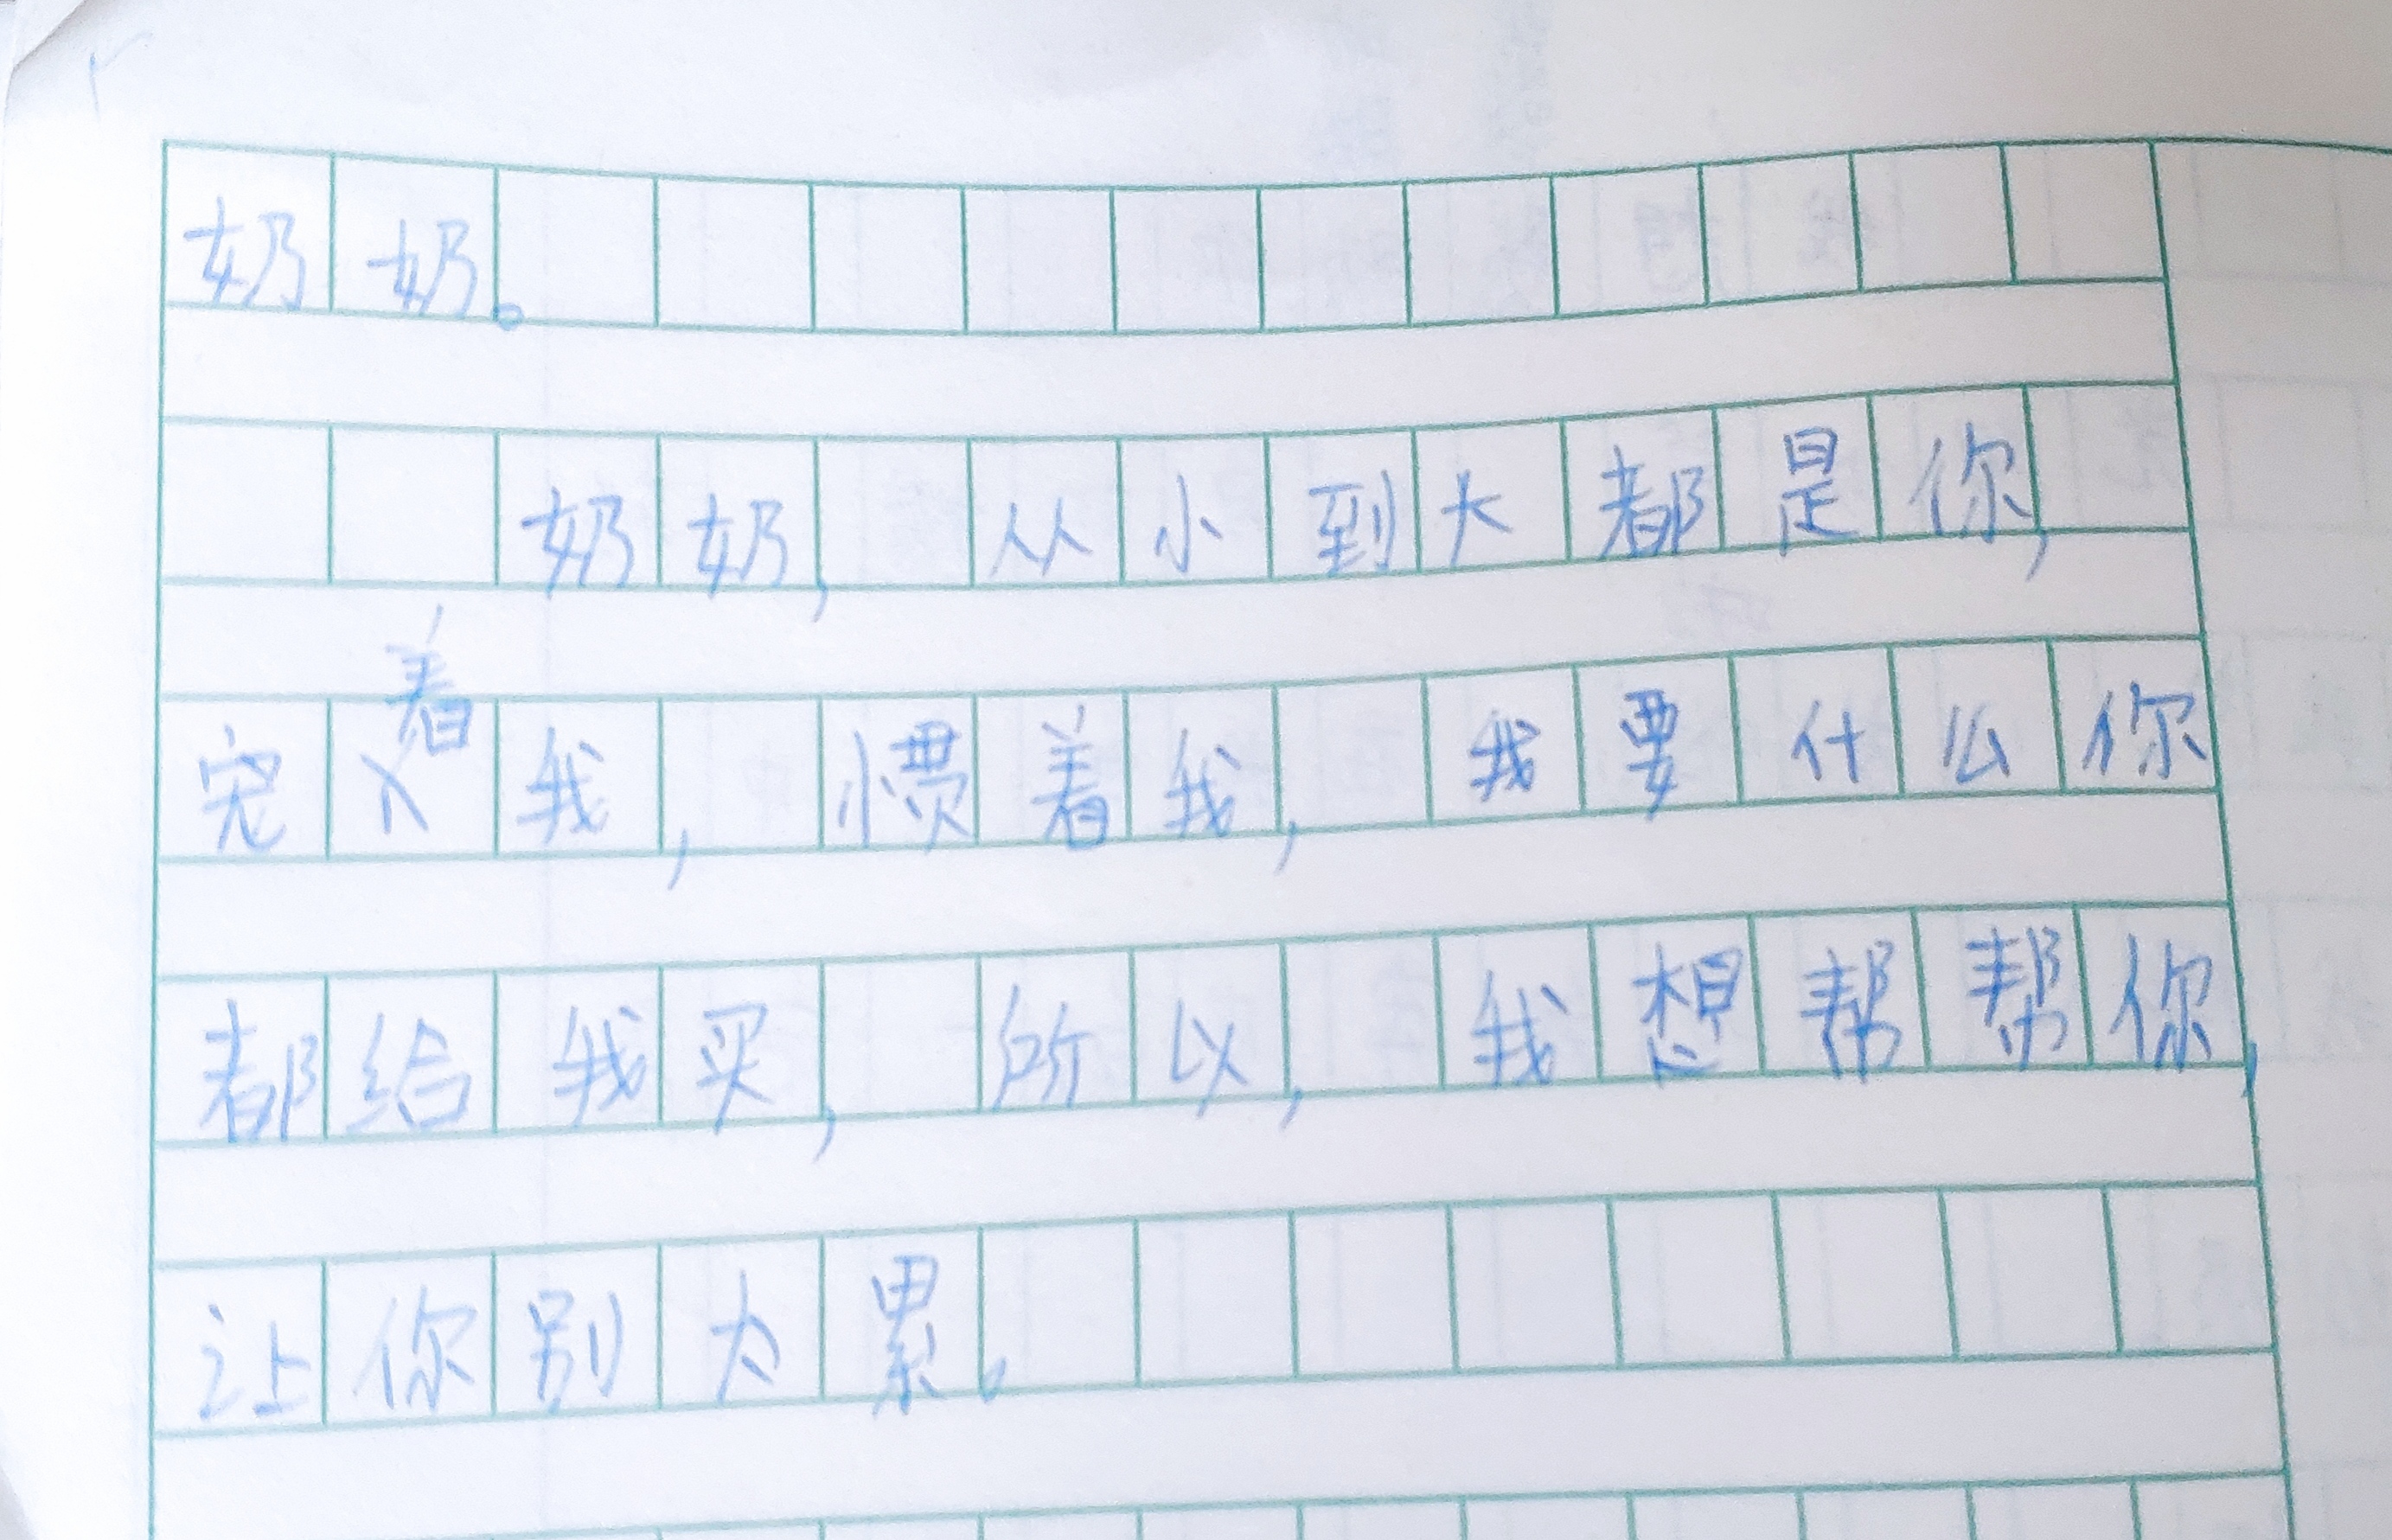 奶奶。
奶奶,从小到大都是你,
宠着我,惯着我,我要什么你
都给我买,所以,我想帮帮你,
让你别为累。